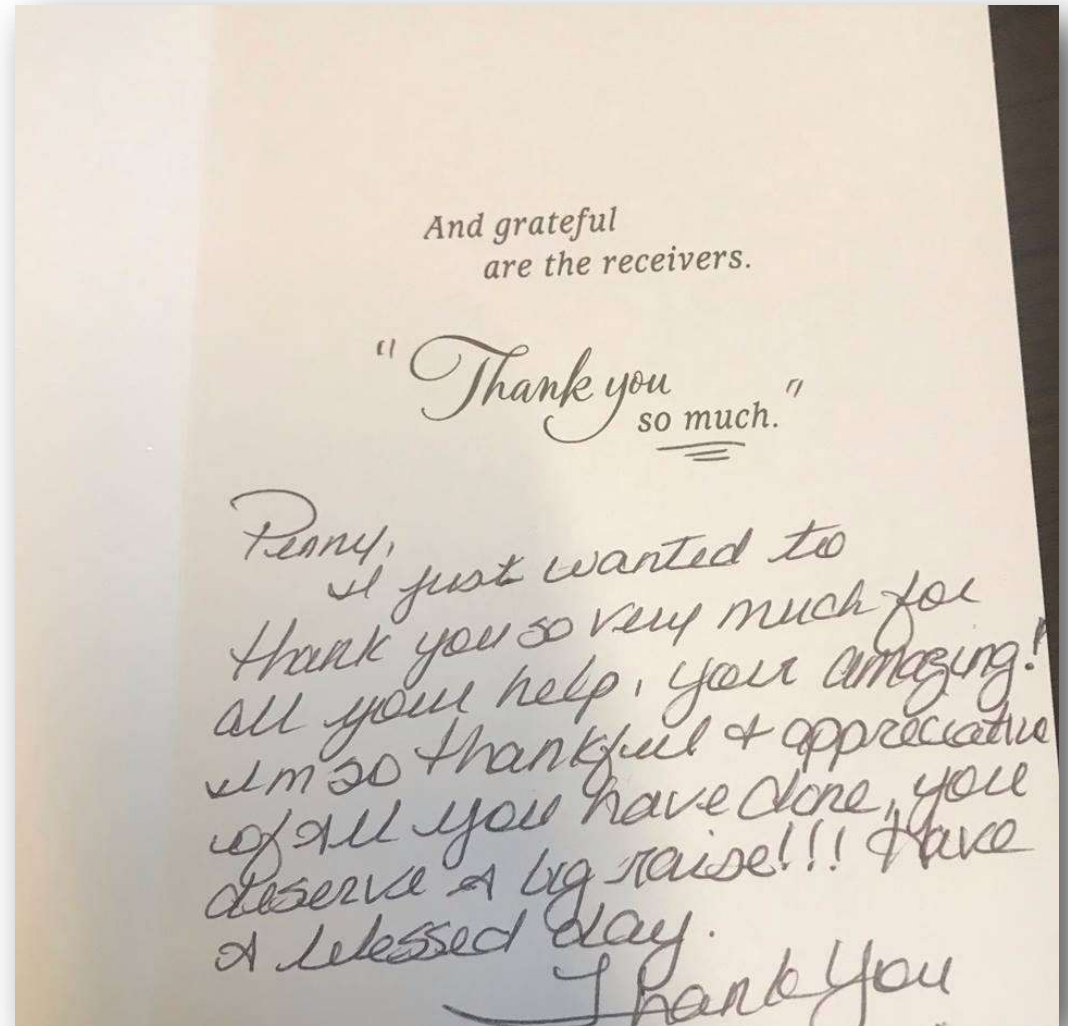 And grateful
are the receivers.
"Thank you
so much."
Penny,
I just wanted to
thank you so very much for
all your help, your amazing!
I'm so thankful & appreciative
of all you have done, you
deserve a big raise!!! Have
a blessed day.
Thank You